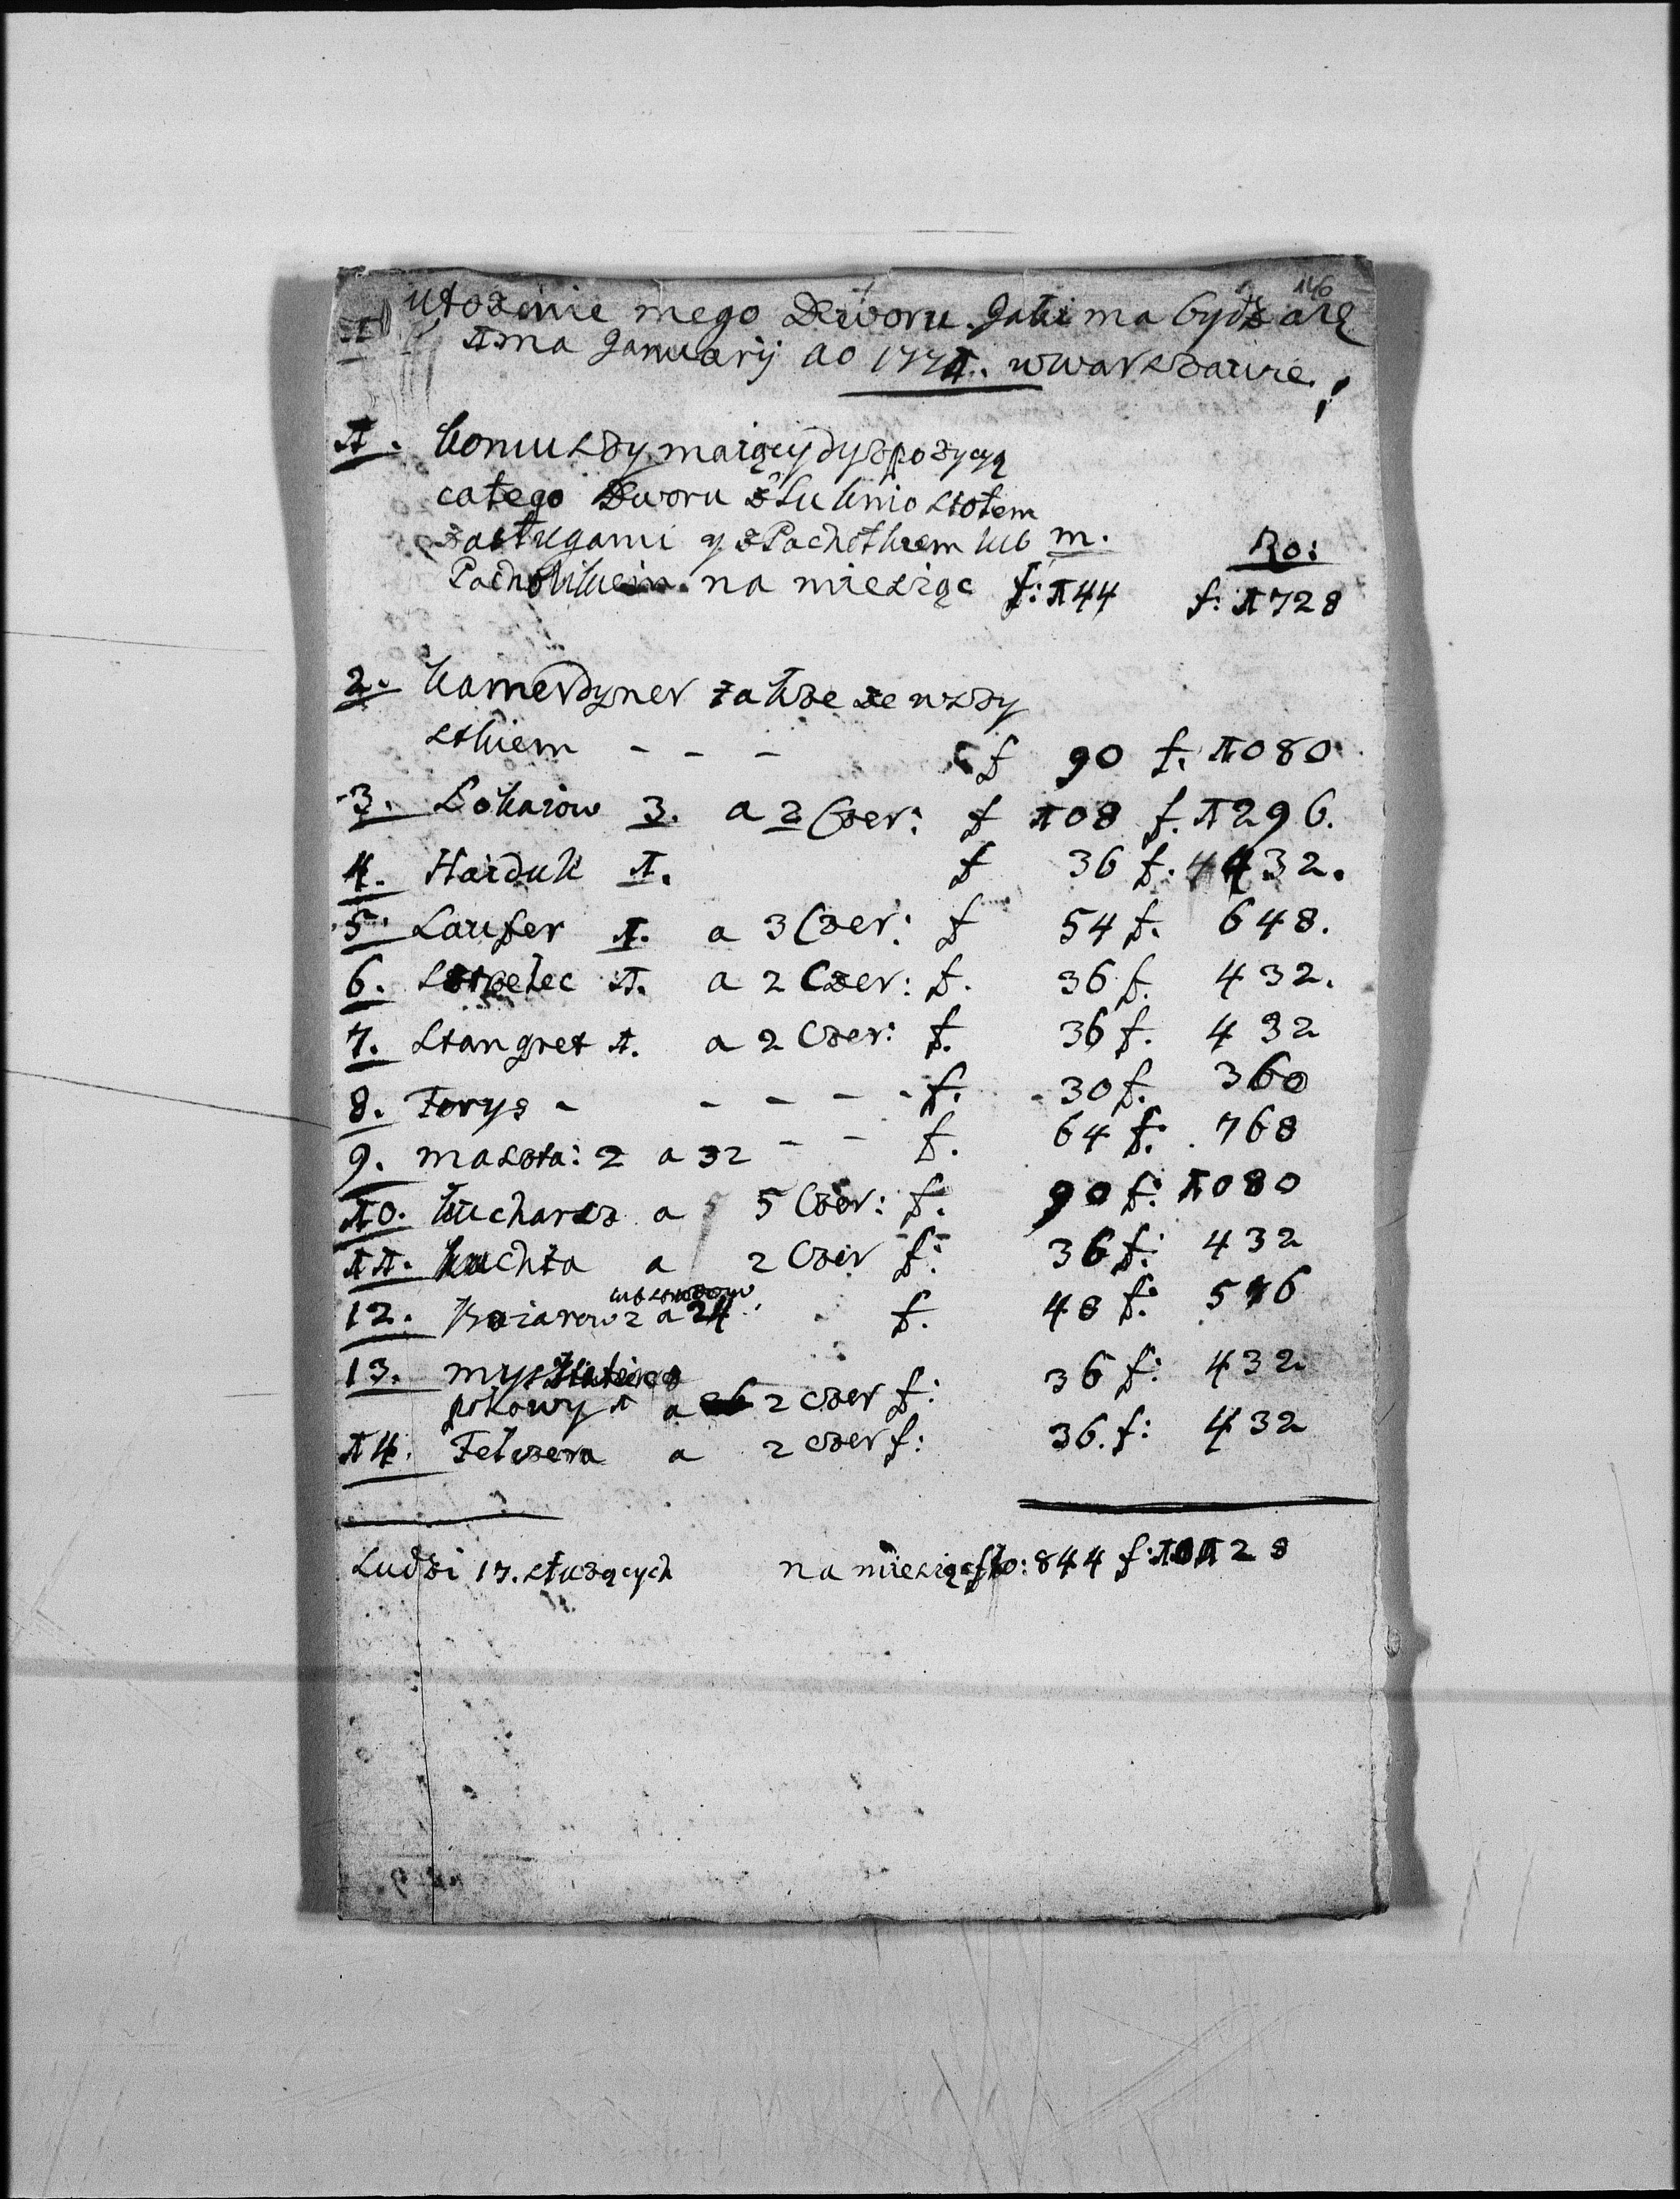 146
Ułożenie mego Dworu. Jaki ma bydź
1ma Januarij ao 1771. w warszawie.
1. koniuszy maiący dyspozycyą
całego Dworu z Suknio stołem
zasługami y z Pachołkiem lub m. Ro:
na miesiąc f: 144 f: 1728
2. kamerdyner także ze wszy
stkiem - - - f 90 f. 1080
3. Lokaiow 3. a 2 Czer: f 108 f. 1296.
4. Haiduk 1. f 36 f. 432.
5. Laufer 1. a 3 Czer: f 54 f. 648.
6. Strzelec 1. a 2 Czer: f. 36 f. 432.
7. Stangret 1. a 2 Czer: f. 36 f. 432
8. Forys - - - - - f. 30 f. 360
9. maszta: 2 a 32 - - f. 64 f. 768
10. kucharz a 5 Czer: f. 90 f: 1080
11. kuchta a 2 Czer f: 36 f: 432
12. 2 a 24 f. 48 f: 576
13. 36 f: 432
pokowy 1 a 2 czer f:
14. Felczera a 2 czer f: 36. f: 432
Ludzi 17. służących na miesiąc fło: 844 f: 10128